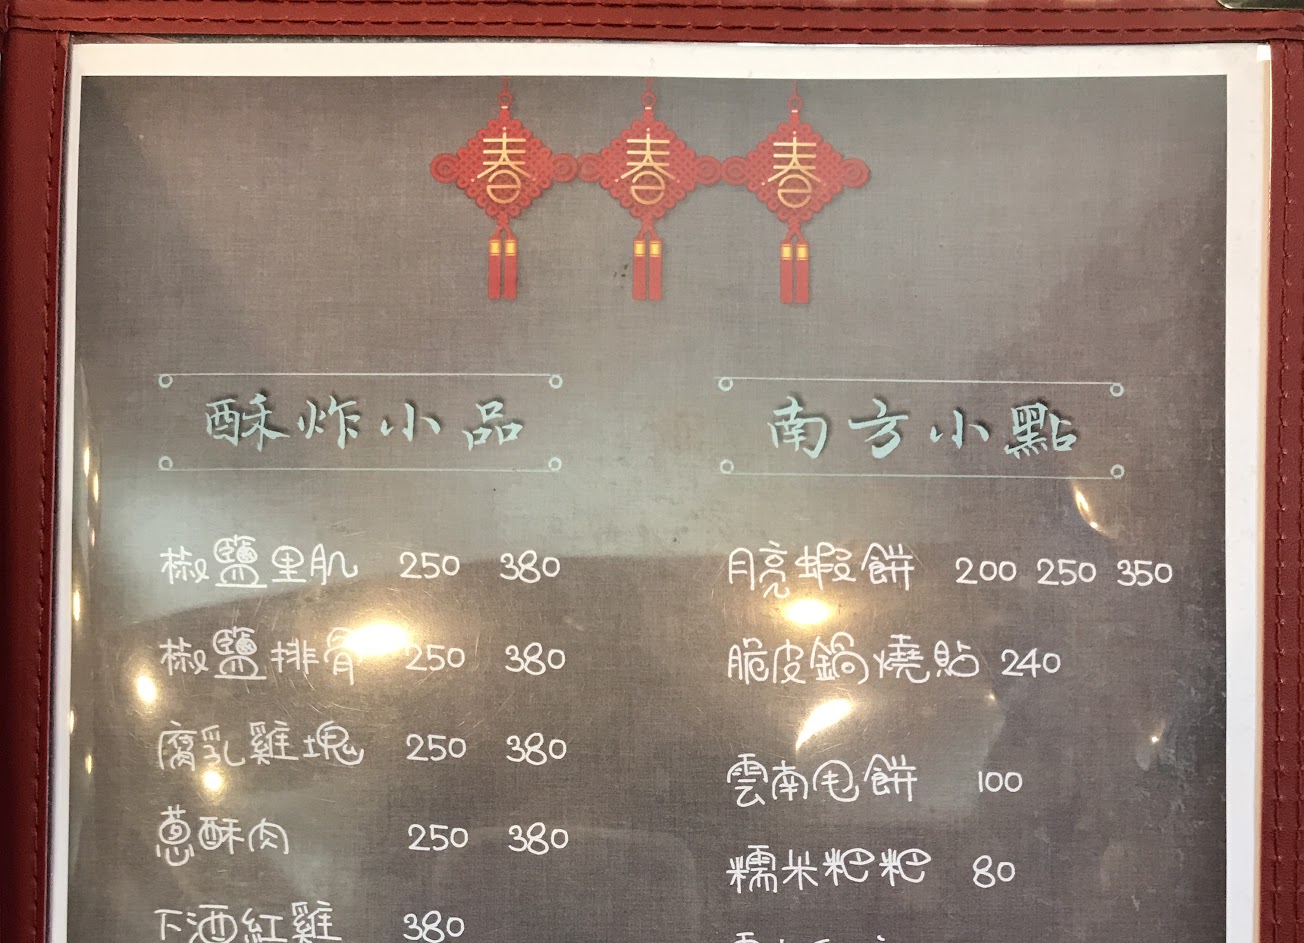 春 春 春
酥炸小品
椒鹽里肌 250 380
椒鹽排骨 250 380
腐乳雞塊 250 380
蔥酥肉 250 380
下酒紅雞 380
南方小點
月亮蝦餅 200 250 350
脆皮鍋燒貼 240
雲南甩餅 100
糯米粑粑 80